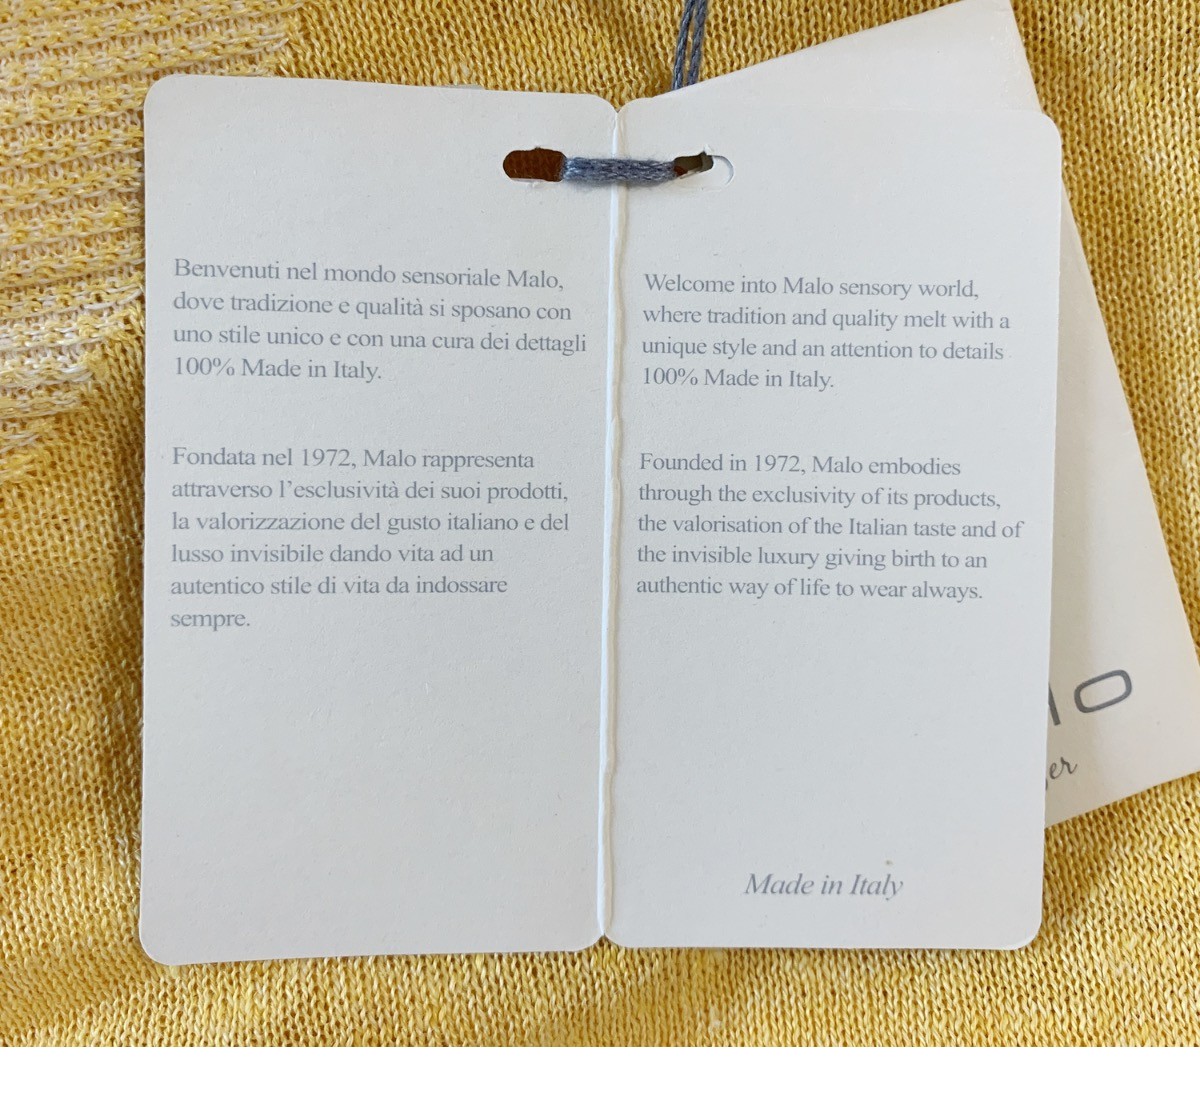 Benvenuti nel mondo sensoriale Malo,
dove tradizione e qualità si sposano con
uno stile unico e con una cura dei dettagli
100% Made in Italy.
Fondata nel 1972, Malo rappresenta
attraverso l'esclusività dei suoi prodotti,
la valorizzazione del gusto italiano e del
lusso invisibile dando vita ad un
autentico stile di vita da indossare
sempre.
Welcome into Malo sensory world,
where tradition and quality melt with a
unique style and an attention to details
100% Made in Italy.
Founded in 1972, Malo embodies
through the exclusivity of its products,
the valorisation of the Italian taste and of
the invisible luxury giving birth to an
authentic way of life to wear always.
Made in Italy